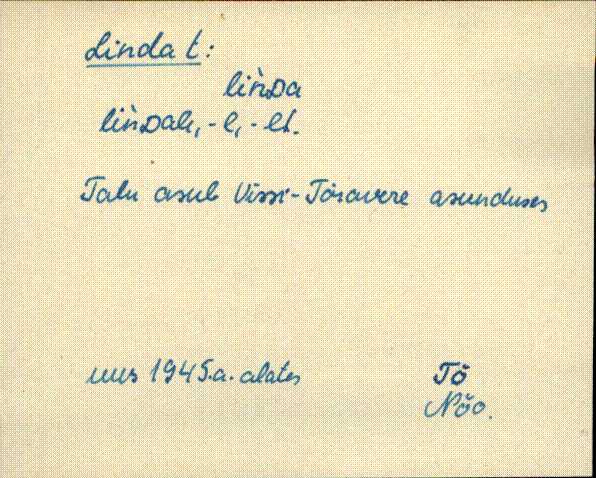 Linda t:
lìnᴅa
lìnᴅale, -l, -lt.
Talu asub Vissi-Tõravere asunduses
uus 1945.a. alates
Tõ
Nõo.